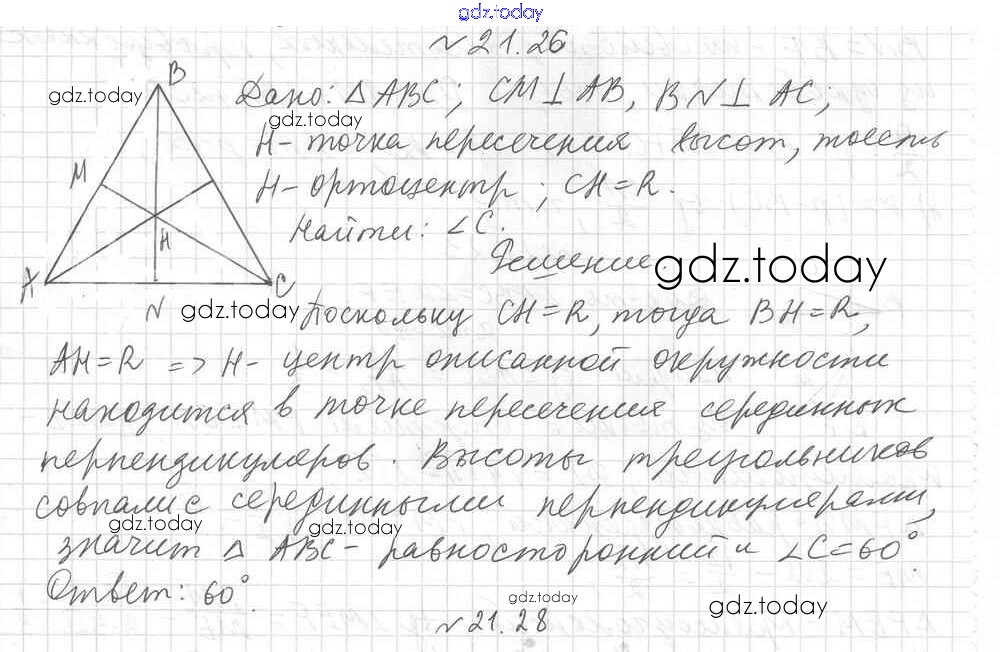 gdz.today
№ 21.26
B
gdz.today
Дано: △ABC; CM⊥AB, BN⊥AC;
gdz.today
H - точка пересечения высот, тоесть
M
H - ортоцентр; CH=R.
Найти: ∠C.
H
Решение.
gdz.today
A
C
N
gdz.today
Поскольку CH=R, тогда BH=R,
AH=R => H - центр описанной окружности
находится в точке пересечения серединных
перпендикуляров. Высоты треугольников
совпали с серединными перпендикулярами,
gdz.today
gdz.today
значит △ ABC - равносторонний и ∠C=60°.
Ответ: 60°.
gdz.today
gdz.today
№ 21.28